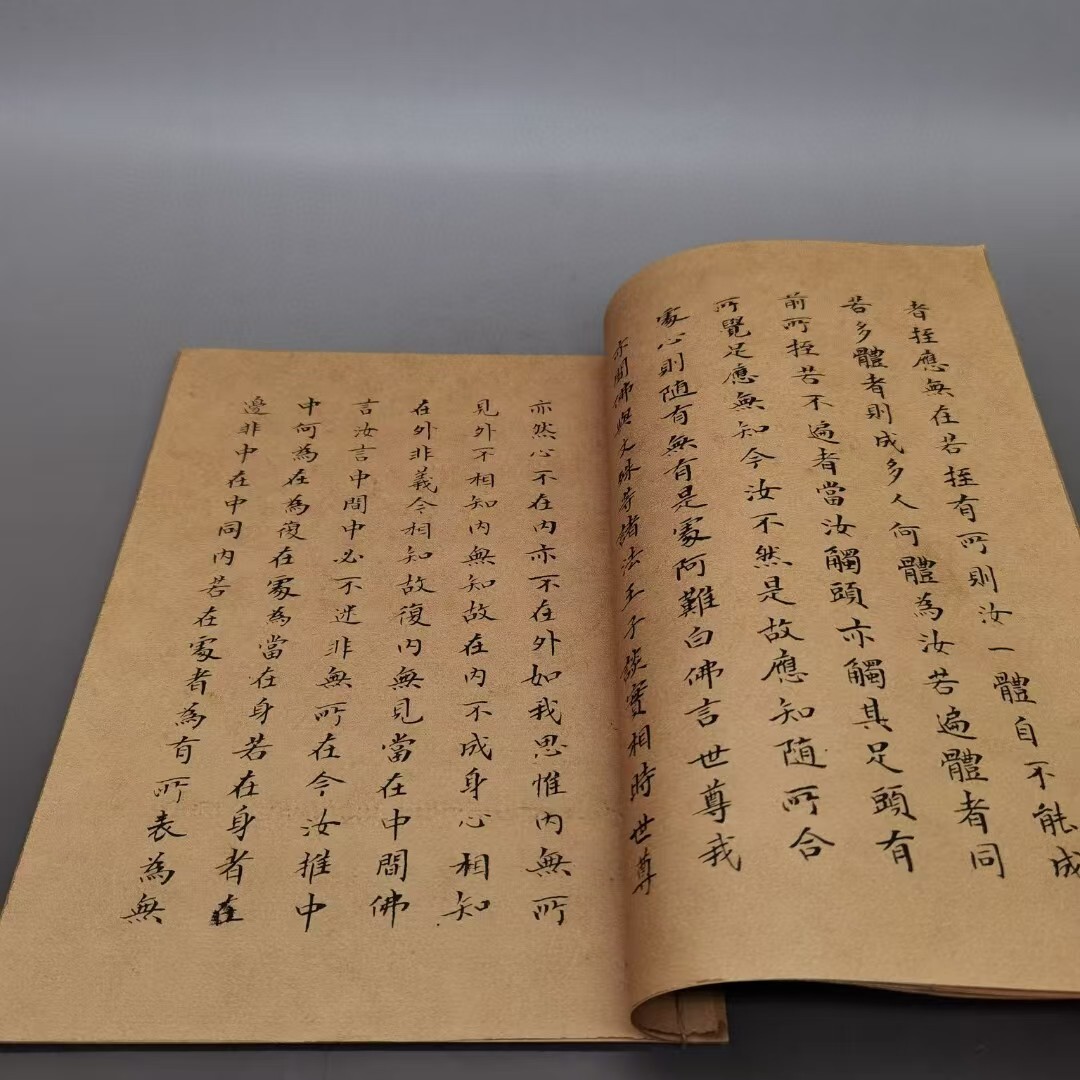 者挃應無在若挃有所則汝一體自不能成
若多體者則成多人何體為汝若遍體者同
前所挃若不遍者當汝觸頭亦觸其足頭有
所覺足應無知今汝不然是故應知随所合
處心則随有無有是處阿難白佛言世尊我
亦聞佛與文殊等諸法王子談實相時世尊
亦然心不在內亦不在外如我思惟內無所
見外不相知內無知故在內不成身心相知
在外非義今相知故復內無見當在中間佛
言汝言中間中必不迷非無所在今汝推中
中何為在為復在處為當在身若在身者在
邊非中在中同內若在處者為有所表為無